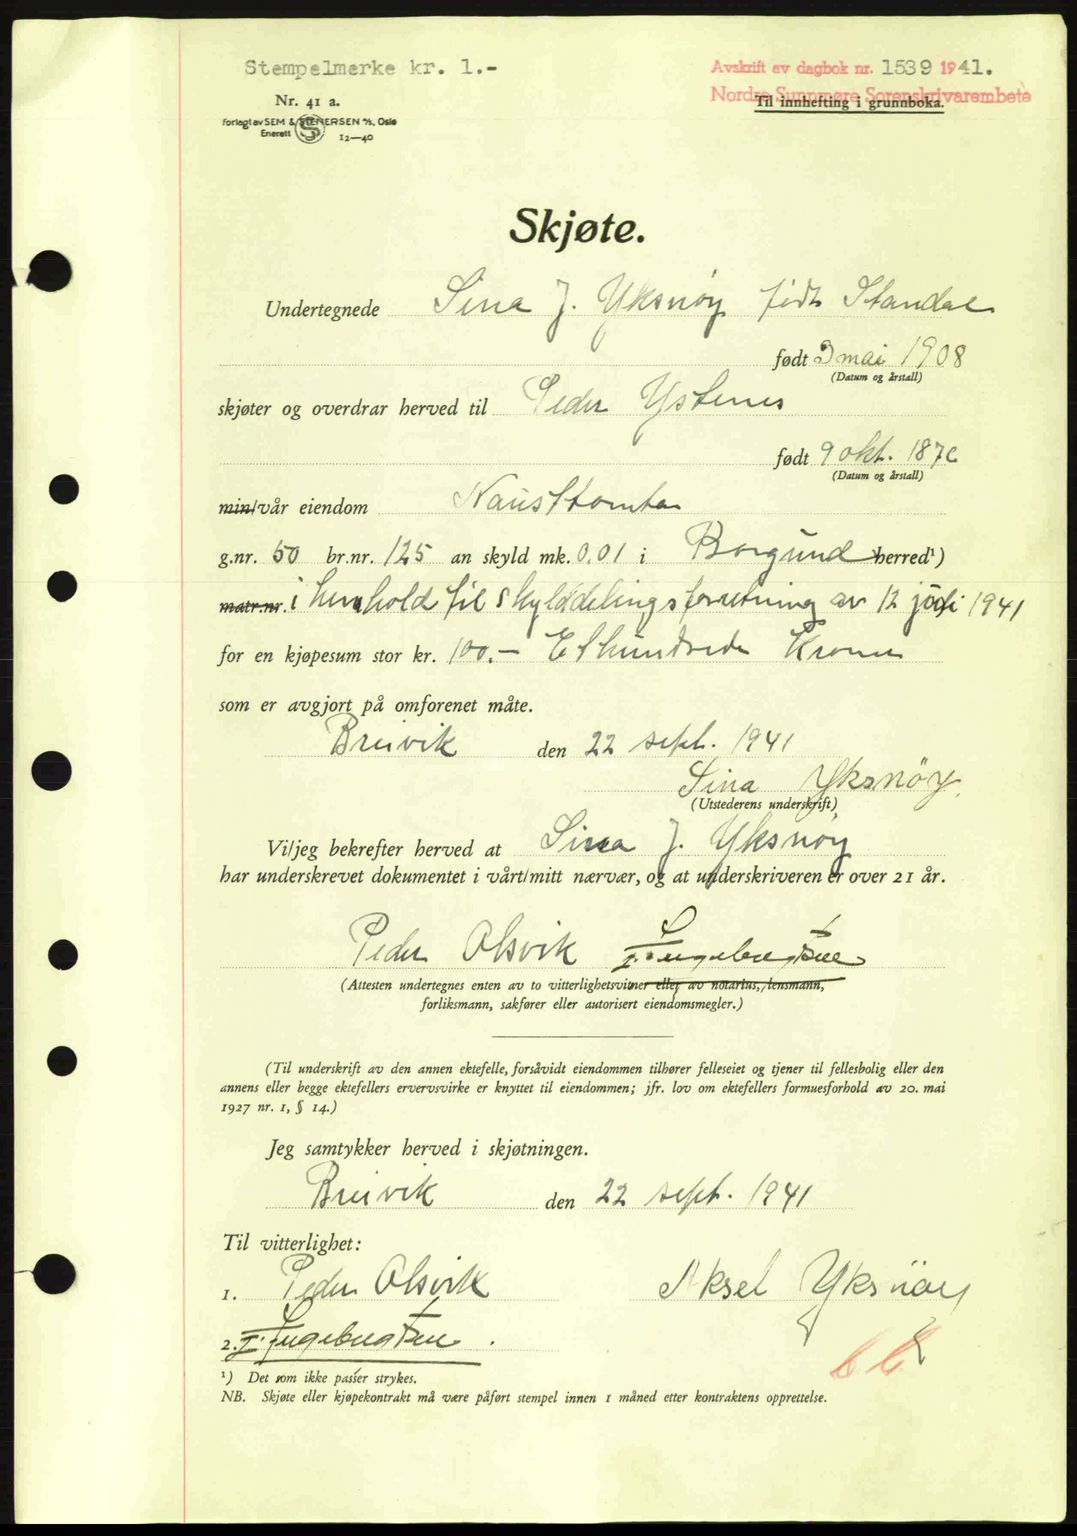 Stempelmerke kr. 1.-
Avskrift av dagbok nr. 1539 1941.
Nordre Sunnmøre Sorenskriverembete
Nr. 41 a.
Til innhefting i grunnboka.
Forlagt av SEM & STENERSEN A/S, Oslo
Enerett S 12—40
Skjøte.
Undertegnede Sina J. Yksnøy født Standal
født 3 mai 1908
(Datum og årstall)
skjøter og overdrar herved til Peder Ystenes
født 9 okt. 1870
(Datum og årstall)
min/vår eiendom Nausttomta
g.nr. 50 br.nr. 125 an skyld mk. 0.01 i Borgund herred¹)
matr.nr. i henhold til skylddelingsforretning av 12 juli 1941
for en kjøpesum stor kr. 100.- Et hundrede Kroner
som er avgjort på omforenet måte.
Breivik den 22 sept. 1941
Sina Yksnöy.
(Utstederens underskrift)
Vi/jeg bekrefter herved at Sina J. Yksnöy
har underskrevet dokumentet i vårt/mitt nærvær, og at underskriveren er over 21 år.
Peder Olsvik
(Attesten undertegnes enten av to vitterlighetsvitner eller av notarius, lensmann,
forliksmann, sakfører eller autorisert eiendomsmegler.)
(Til underskrift av den annen ektefelle, forsåvidt eiendommen tilhører felleseiet og tjener til fellesbolig eller den
annens eller begge ektefellers ervervsvirke er knyttet til eiendommen; jfr. lov om ektefellers formuesforhold av 20. mai
1927 nr. 1, § 14.)
Jeg samtykker herved i skjøtningen.
Breivik den 22 sept. 1941
Til vitterlighet:
1. Peder Olsvik Aksel Yksnöy
2.
¹) Det som ikke passer strykes.
NB. Skjøte eller kjøpekontrakt må være påført stempel innen 1 måned etter kontraktens opprettelse.